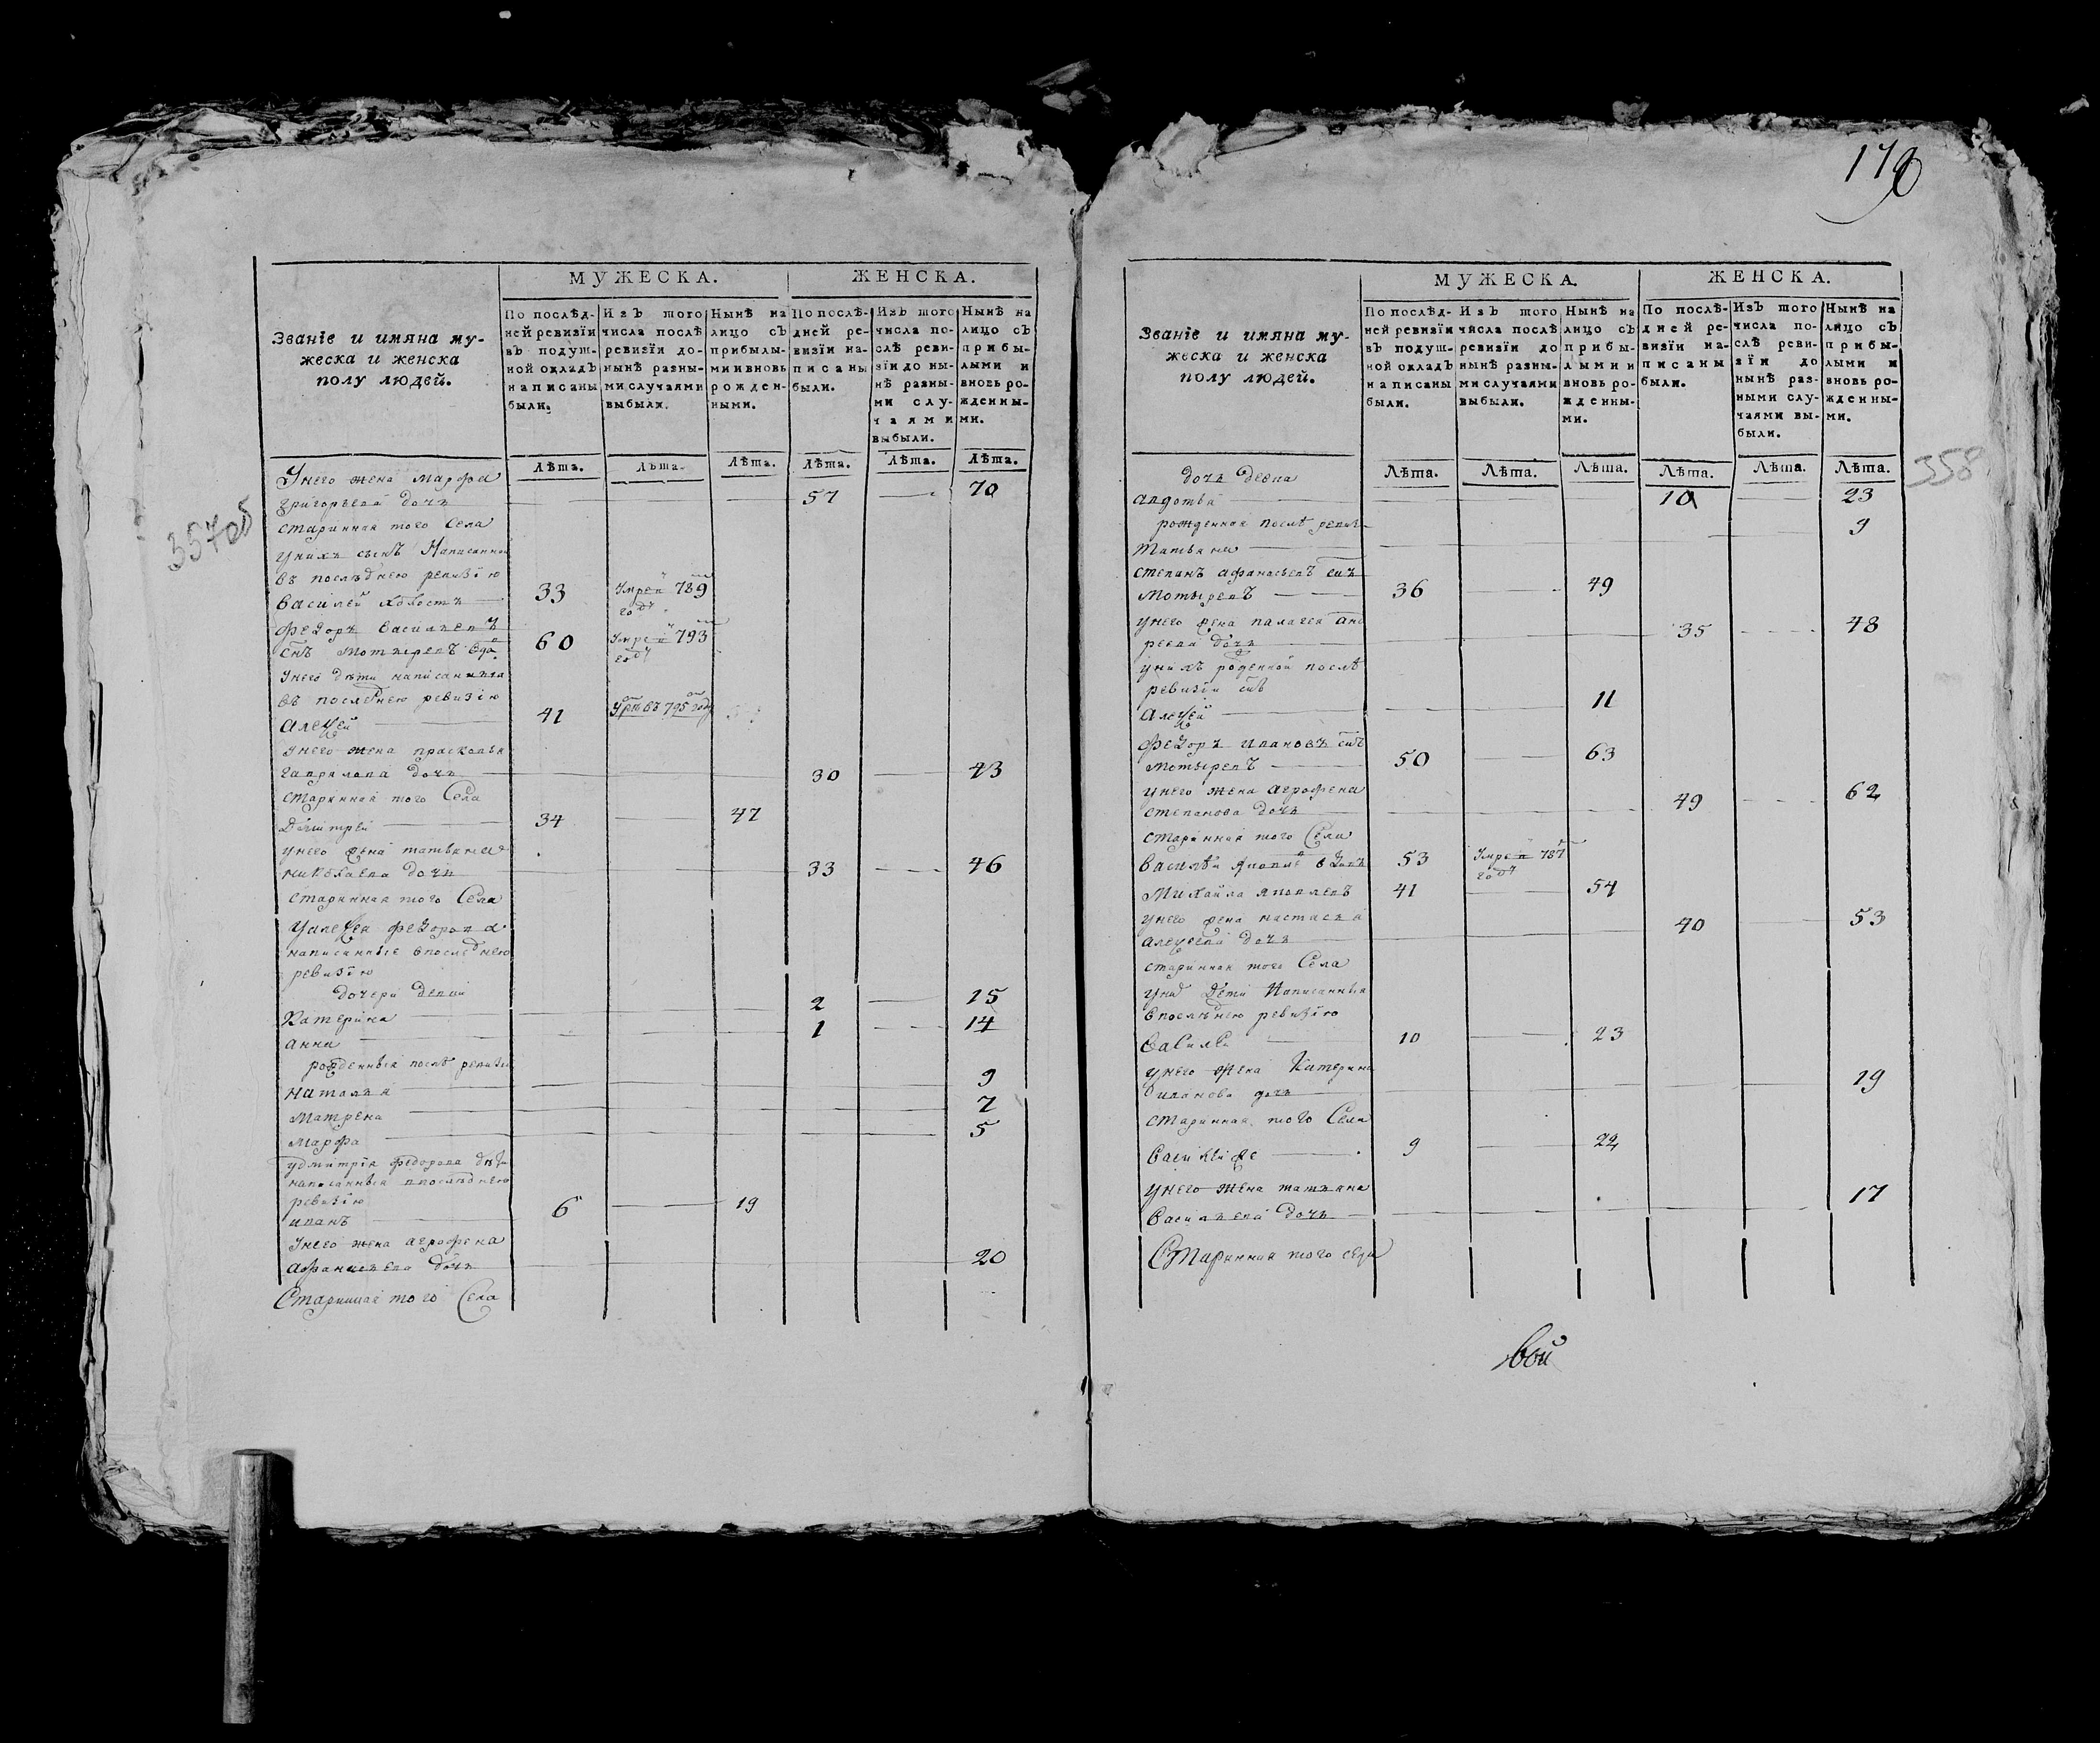 357об
МУЖЕСКА. ЖЕНСКА.
Званїе и имяна му-
жеска и женска
полу людей.
По послѣд-
ней ревизїи
въ подуш-
ной окладъ
написаны
были.
Изъ того
числа послѣ
ревизїи до-
нынѣ разны-
ми случаями
выбыли.
Нынѣ на
лицо съ
прибылы-
ми и вновь
рожден-
ными.
По послѣ-
дней ре-
визїи на-
писаны
были.
Изъ того
числа по-
слѣ реви-
зїи до ны-
нѣ разны-
ми слу-
чаями
выбыли.
Нынѣ на
лицо съ
прибы-
лыми и
вновь ро-
жденны-
ми.
Лѣта. Лѣта. Лѣта. Лѣта. Лѣта. Лѣта.
Унего жена марфа
григорьева дочь 57 70
старинная того Села
унихъ сынъ Написанно
въ последнею ревизїю
василей холостъ 33 Умре в 789
году
Федоръ васильевъ
снъ мотыревъ вдо 60 Умре в 793
году
Унего дѣти написанныя
въ последнею ревизїю
алеѯей 41 795 году
Унего жена прасковья
гаврилова дочь 30 43
старинная того Села
дмитрей 34 47
унего жена татьяна
николаева дочь 33 46
старинная того Села
Уалеѯея федорова
написанные впоследнею
ревизїю
дочери девки
Катерина 2 15
анна 1 14
рожденныя послѣ ревизи
наталья 9
матрена 7
марфа 5
удмитрїя федорова дѣти
написанныя впоследнею
ревизїю
иванъ 6 19
Унего жена агрофена
афанасьева дочь 20
Старинная того Села
179
358
МУЖЕСКА. ЖЕНСКА.
Званїе и имяна му-
жеска и женска
полу людей.
По послѣ-
ней ревизїи
въ подуш-
ной окладъ
написаны
были.
Изъ того
числа послѣ
ревизїи до
нынѣ разны-
ми случаями
выбыли.
Нынѣ на
лицо съ
прибы-
лыми и
вновь ро-
жденны-
ми.
По послѣ-
дней ре-
визїи на-
писаны
были.
Изъ того
числа по-
слѣ реви-
зїи до
нынѣ раз-
ными слу-
чаями вы-
были.
Нынѣ на
лицо съ
прибы-
лыми и
вновь ро-
жденны-
ми.
Лѣта. Лѣта. Лѣта. Лѣта. Лѣта. Лѣта.
дочь девка
авдотья 10 23
рожденная послѣ ревиз
татьяна 9
степанъ афанасьевъ снъ
мотыревъ 36 49
унего жена палагея анд
реева дочь 35 48
унихъ роденной послѣ
ревизїи снъ
алеѯей 11
Федоръ ивановъ снъ
мотыревъ 50 63
унего жена агрофена
степанова дочь 49 62
старинная того Села
василѣй яковлѣ 53 Умре в 787
году
Михайла яковлевъ 41 54
унего жена настасья
алеѯеева дочь 40 53
старинная того Села
дети Написанныя
впоследнею ревизїю
василей 10 23
унего жена Катерина
иванова дочь 19
старинная того Села
василей же 9 22
унего жена татьяна
васильева дочь 17
Старинная того села
вой